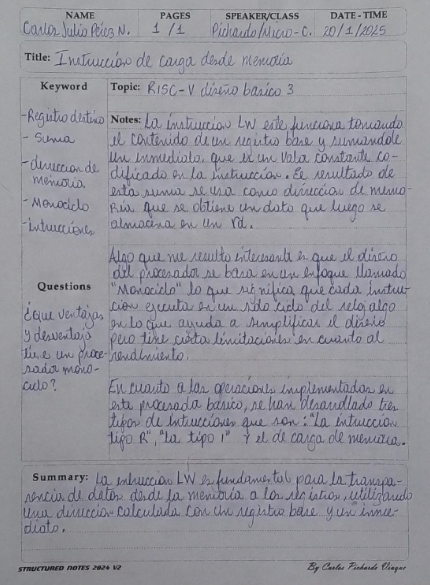 NAME PAGES SPEAKER/CLASS DATE - TIME
Carlos Julio Pérez N. 1/1 Pichardo/Micro-C. 20/1/2025
Title: Instrucción de carga desde memoria
Keyword
-Registro destino
- Suma
-direccion de
memoria
-Monociclo
-intrucciones
Questions
¿que ventajas
y desventaja
tiene un proce-
sador mono-
ciclo?
Topic: RISC-V diseño basico 3
Notes: La instruccion LW este funciona tomando
el contenido de un registro base y sumandole
un inmediato, que es un vala constante co-
dificado en la instruccion. Ee resultado de
esta suma se usa como direccion de memo-
ria que se obtiene un dato que luego se
almacena en un Rd.
Algo que me resulto interesante es que el diseño
del procesador se basa en un enfoque llamado
"Monociclo" lo que significa que cada instruc-
cion ejecuta en un solo ciclo del reloj algo
en lo que ayuda a simplificar el diseño
pero tine cierta limitaciones en cuanto al
rendimiento.
En cuanto a las operaciones implementadas en
este procesada basico, se han desarollado tres
tipos de Intrucciones que son: "La intruccion
tipo R", "La tipo I" y el de carga de memoria.
Summary: La intruccion LW es fundamental para la transpa-
rencia de datos desde la memoria a los registros, utilizando
una direccion calculada con un registro base y un inme-
diato.
STRUCTURED NOTES 2024 V2 By Carlos Pichardo Viuque